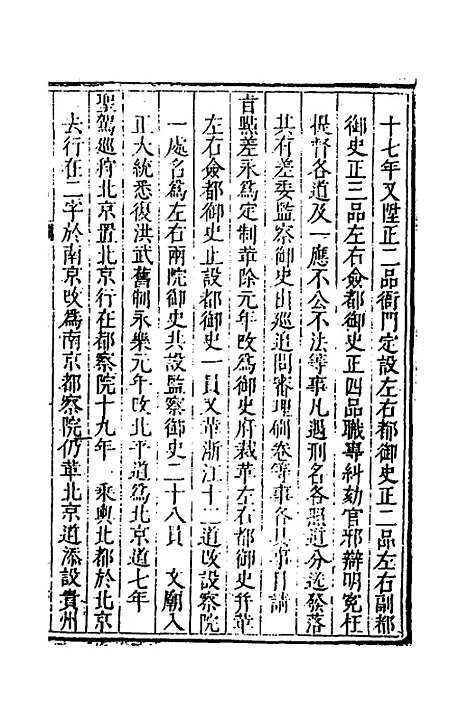 十七年又陞正二品衙門定設左右都御史正二品左右副都
御史正三品左右僉都御史正四品職專糾劾官邪辯明冤枉
提督各道及一應不公不法等事凡遇刑名各照道分送發落
其有差委監察御史出巡追問審理刷卷等事各具事目請
旨點差永爲定制革除元年改爲御史府裁革左右都御史并革
左右僉都御史止設都御史一員又革浙江十二道改設察院
一處名爲左右兩院御史共設監察御史二十八員 文廟入
正大統悉復洪武舊制永樂元年改北平道爲北京道七年
聖駕巡狩北京置北京行在都察院十九年 乘輿北都於北京
去行在二字於南京改爲南京都察院仍革北京道添設貴州